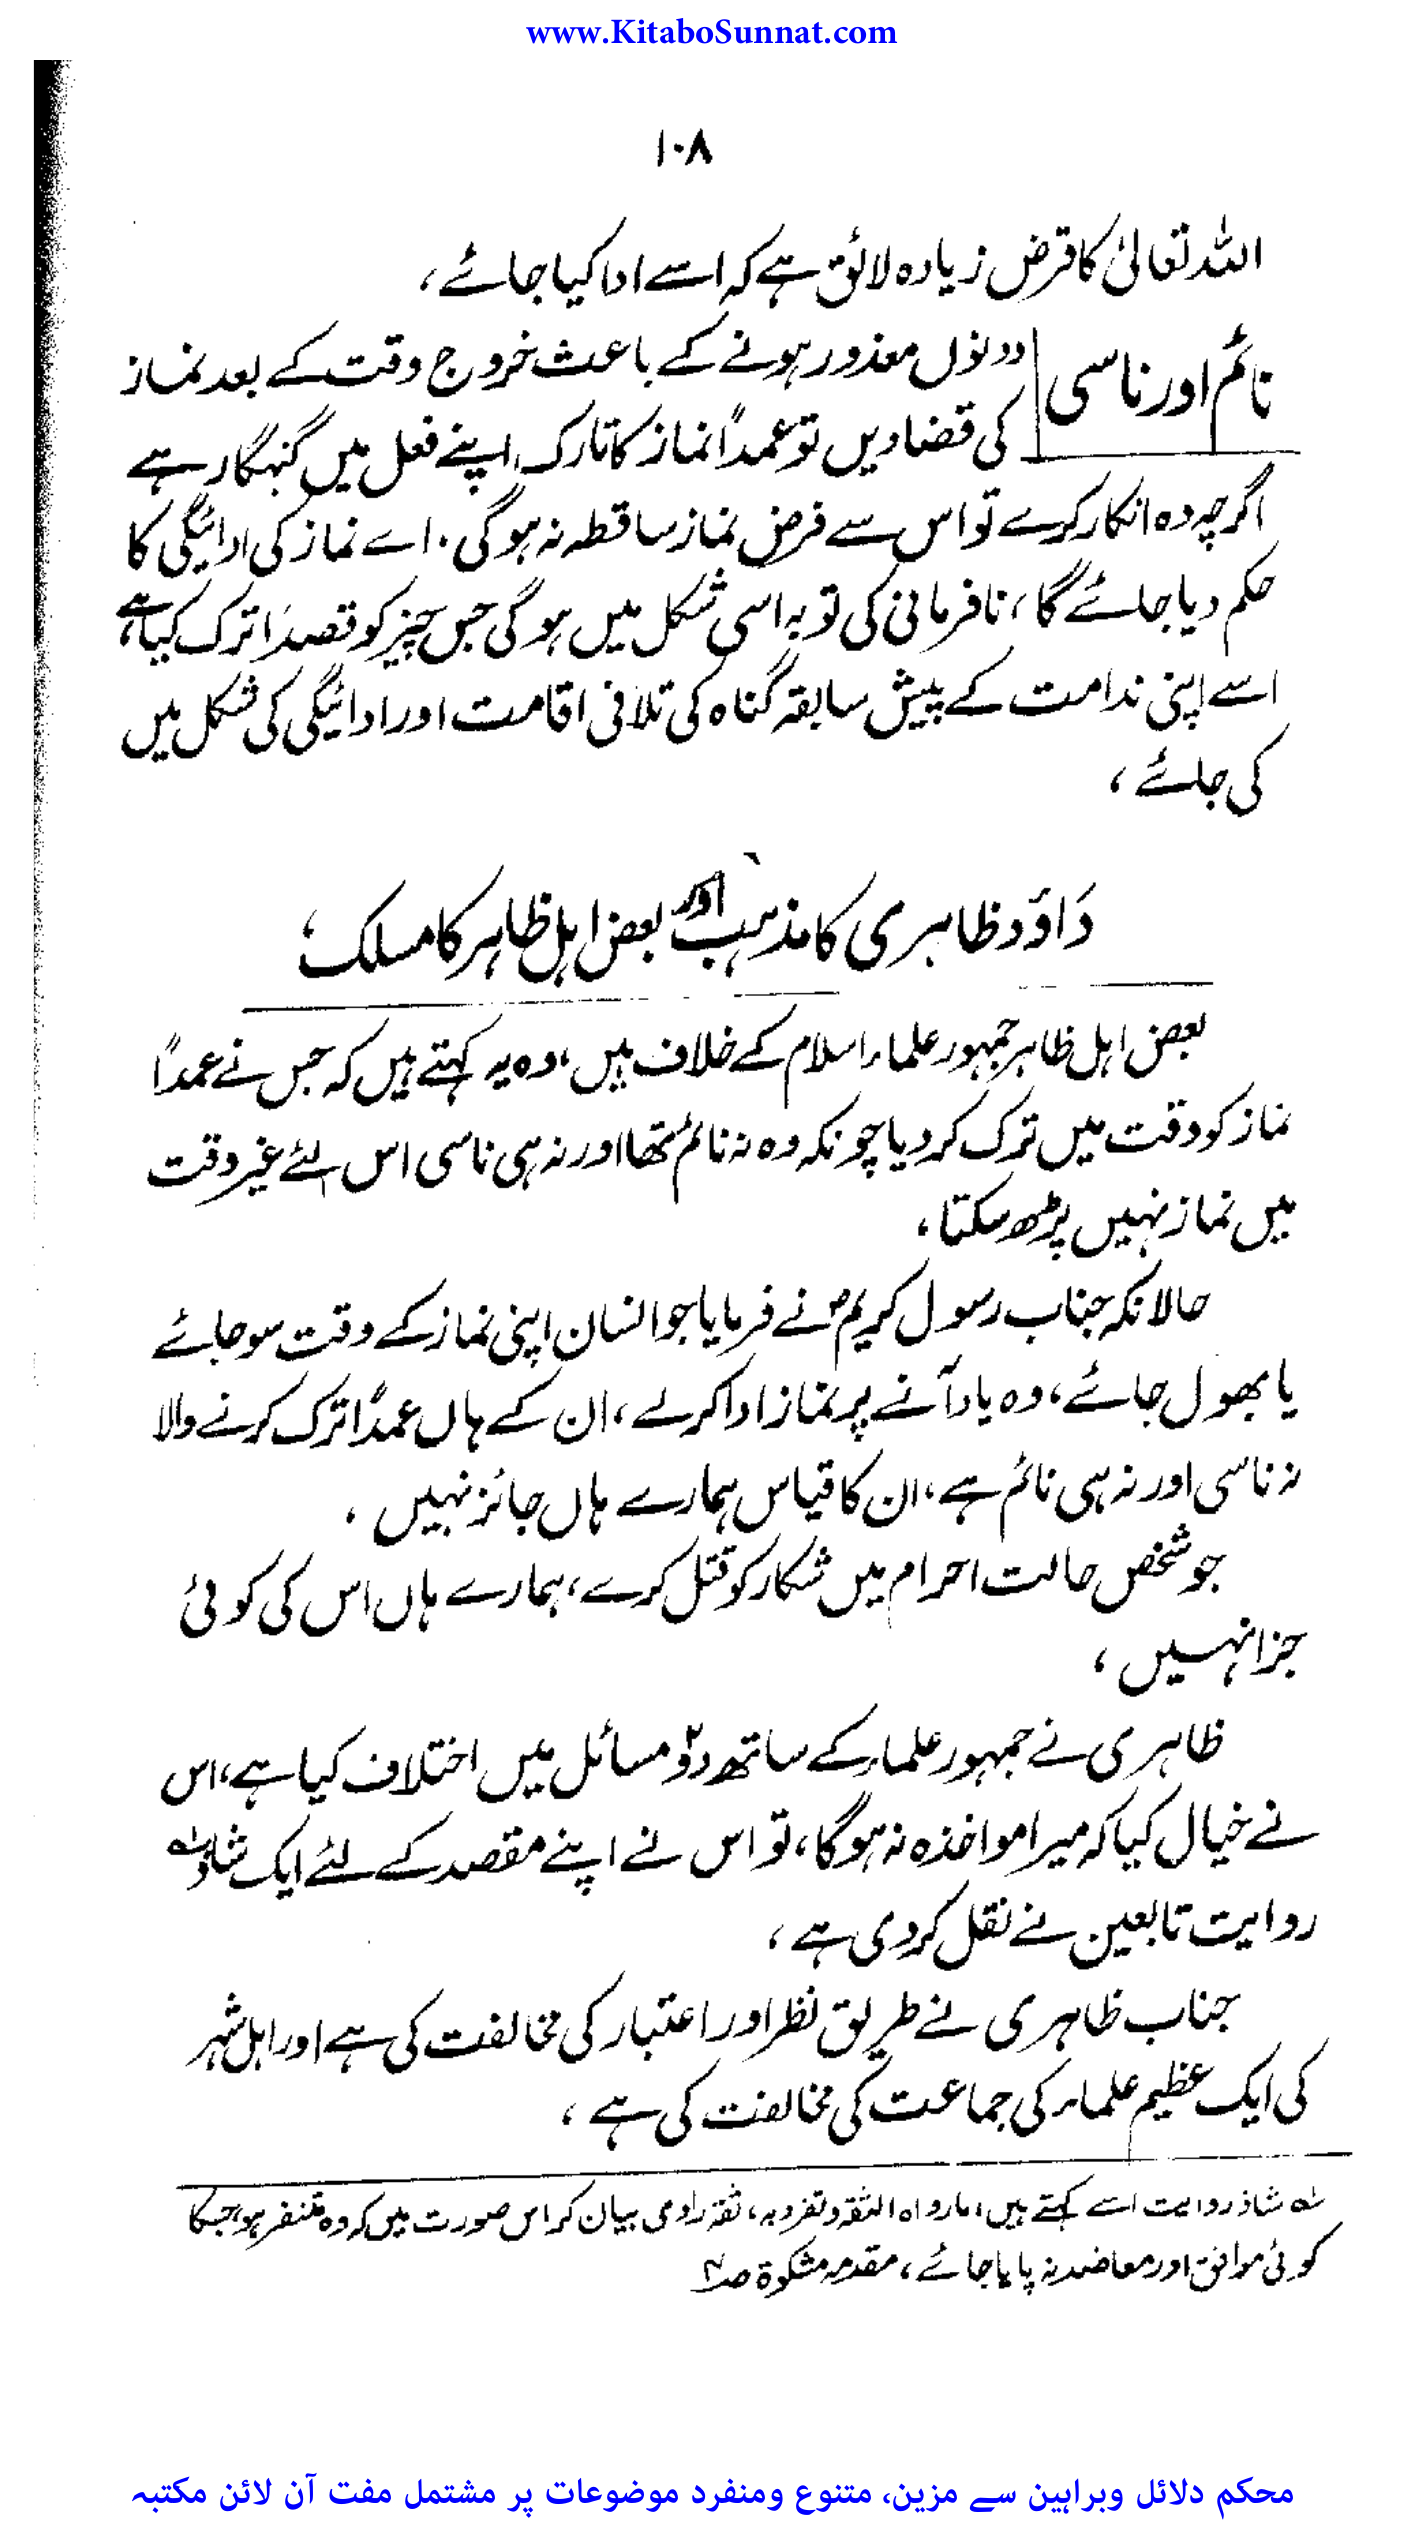 www.KitaboSunnat.com
۱۰۸
اللہ تعالیٰ کا قرض زیادہ لائق ہے کہ اسے ادا کیا جائے،
نائم اور ناسی دونوں معذور ہونے کے باعث خروج وقت کے بعد نماز
کی قضا دیں تو عمداً نماز کا تارک اپنے فعل میں گنہگار ہے
اگرچہ وہ انکار کرے تو اس سے فرض نماز ساقطہ نہ ہوگی، اسے نماز کی ادائیگی کا
حکم دیا جائے گا، نافرمانی کی توبہ اسی شکل میں ہوگی جس چیز کو قصداً ترک کیا ہے،
اسے اپنی ندامت کے پیش سابقہ گناہ کی تلافی اقامت اور ادائیگی کی شکل میں
کی جائے،
داؤد ظاہری کا مذہب اور بعض اہل ظاہر کا مسلک،
بعض اہل ظاہر جمہور علماء اسلام کے خلاف ہیں، وہ یہ کہتے ہیں کہ جس نے عمداً
نماز کو وقت میں ترک کر دیا چونکہ وہ نہ نائم تھا اور نہ ہی ناسی اس لئے غیر وقت
میں نماز نہیں پڑھ سکتا،
حالانکہ جناب رسول کریمؐ نے فرمایا جو انسان اپنی نماز کے وقت سو جائے
یا بھول جائے، وہ یاد آنے پر نماز ادا کرلے، ان کے ہاں عمداً ترک کرنے والا
نہ ناسی اور نہ ہی نائم ہے، ان کا قیاس ہمارے ہاں جائز نہیں،
جو شخص حالت احرام میں شکار کو قتل کرے، ہمارے ہاں اس کی کوئی
جزا نہیں،
ظاہری نے جمہور علماء کے ساتھ دو۲ مسائل میں اختلاف کیا ہے، اس
نے خیال کیا کہ میرا مواخذہ نہ ہوگا، تو اس نے اپنے مقصد کے لئے ایک شاذ؂۱
روایت تابعین نے نقل کردی ہے،
جناب ظاہری نے طریق نظر اور اعتبار کی مخالفت کی ہے اور اہل شہر
کی ایک عظیم علماء کی جماعت کی مخالفت کی ہے،
؂۱ شاذ روایت اسے کہتے ہیں، مارواہ الثقہ وتفرد بہ، ثقہ راوی بیان کر اس صورت میں کہ وہ متنفر ہو، جسکا
کوئی موافق اور معاضد نہ پایا جائے، مقدمہ مشکوۃ صـ
محکم دلائل وبراہین سے مزین، متنوع ومنفرد موضوعات پر مشتمل مفت آن لائن مکتبہ